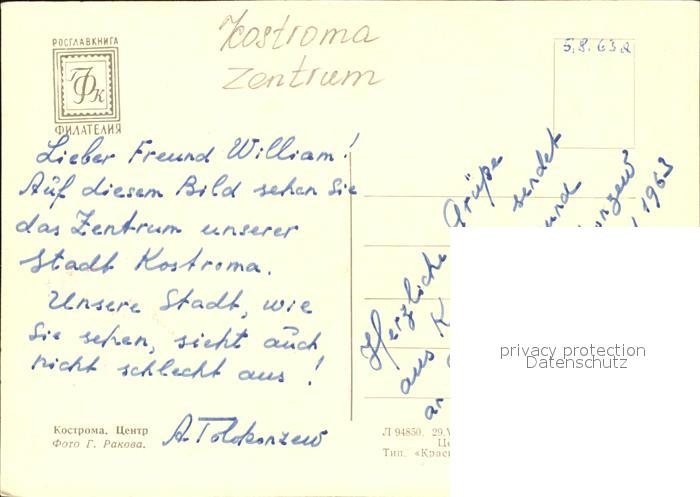 РОСГЛАВКНИГА
ФК
ФИЛАТЕЛИЯ
Kostroma
Zentrum
5.8.63
Lieber Freund William!
Auf diesem Bild sehen Sie
das Zentrum unserer
Stadt Kostroma.
Unsere Stadt, wie
Sie sehen, sieht auch
nicht schlecht aus!
A. Tolokonzew
Кострома. Центр
Фото Г. Ракова.
Herzliche Grüße
aus K sendet
und
1963
privacy protection
Datenschutz
Л 94850. 29.
Це
Тип. «Крас